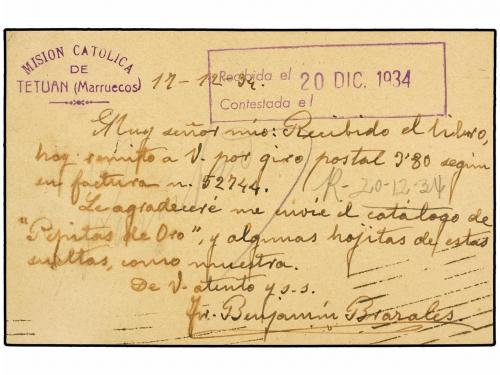 MISION CATOLICA
DE
TETUAN (Marruecos)
17-12-34.
Recibida el 20 DIC. 1934
Contestada el
Muy señor mío: Recibido el libro,
hoy remito a V. por giro postal 3'80 según
su factura n. 52744.
R-20-12-34
Le agradeceré me envíe el catálogo de
"Pepitas de Oro", y algunas hojitas de estas
sueltas, como muestra.
De V. atento y s.s.
Fr. Benjamín Brazales.